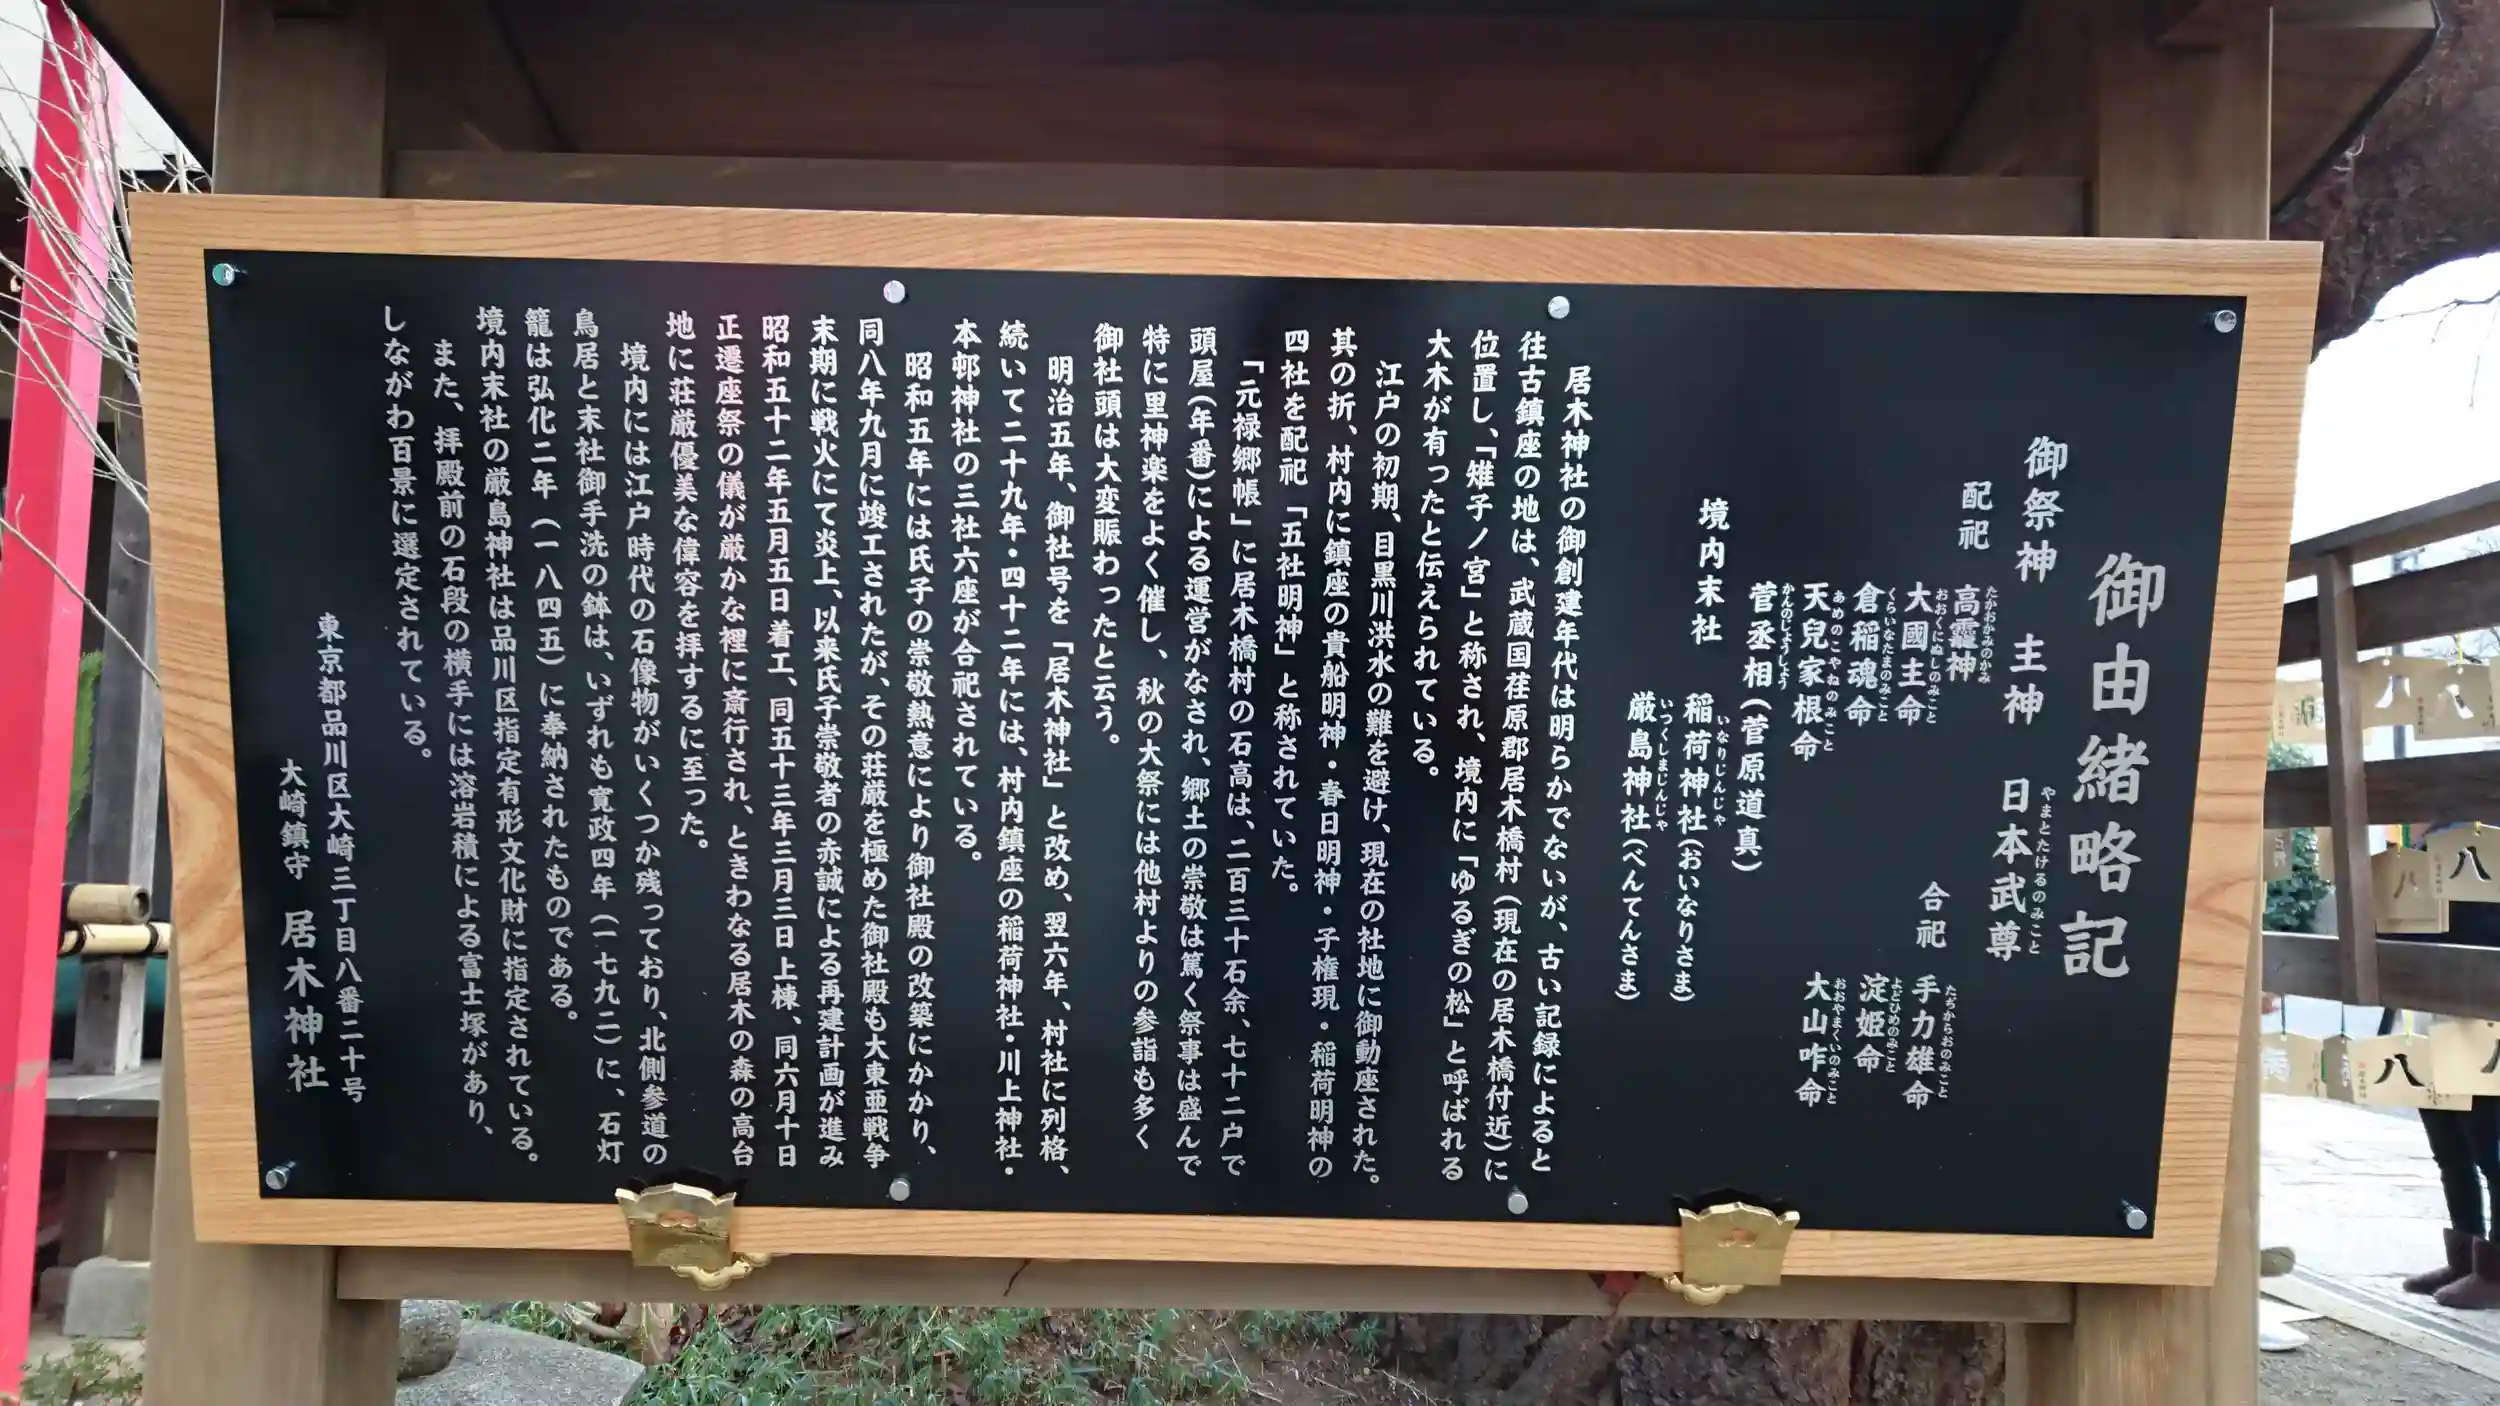 御由緒略記
御祭神　主神　日本武尊
やまとたけるのみこと
配祀　高龗神
たかおかみのかみ
大國主命
おおくにぬしのみこと
倉稲魂命
くらいなたまのみこと
天兒家根命
あめのこやねのみこと
菅丞相（菅原道真）
かんのじょうしょう
合祀　手力雄命
たぢからおのみこと
淀姫命
よどひめのみこと
大山咋命
おおやまくいのみこと
境内末社　稲荷神社（おいなりさま）
いなりじんじゃ
厳島神社（べんてんさま）
いつくしまじんじゃ
居木神社の御創建年代は明らかでないが、古い記録によると
往古鎮座の地は、武蔵国荏原郡居木橋村（現在の居木橋付近）に
位置し、「雉子ノ宮」と称され、境内に「ゆるぎの松」と呼ばれる
大木が有ったと伝えられている。
江戸の初期、目黒川洪水の難を避け、現在の社地に御動座された。
其の折、村内に鎮座の貴船明神・春日明神・子権現・稲荷明神の
四社を配祀「五社明神」と称されていた。
「元禄郷帳」に居木橋村の石高は、二百三十石余、七十二戸で
頭屋（年番）による運営がなされ、郷土の崇敬は篤く祭事は盛んで
特に里神楽をよく催し、秋の大祭には他村よりの参詣も多く
御社頭は大変賑わったと云う。
明治五年、御社号を「居木神社」と改め、翌六年、村社に列格、
続いて二十九年・四十二年には、村内鎮座の稲荷神社・川上神社・
本邨神社の三社六座が合祀されている。
昭和五年には氏子の崇敬熱意により御社殿の改築にかかり、
同八年九月に竣工されたが、その荘厳を極めた御社殿も大東亜戦争
末期に戦火にて炎上、以来氏子崇敬者の赤誠による再建計画が進み
昭和五十二年五月五日着工、同五十三年三月三日上棟、同六月十日
正遷座祭の儀が厳かな裡に斎行され、ときわなる居木の森の高台
地に荘厳優美な偉容を拝するに至った。
境内には江戸時代の石像物がいくつか残っており、北側参道の
鳥居と末社御手洗の鉢は、いずれも寛政四年（一七九二）に、石灯
籠は弘化二年（一八四五）に奉納されたものである。
境内末社の厳島神社は品川区指定有形文化財に指定されている。
また、拝殿前の石段の横手には溶岩積による富士塚があり、
しながわ百景に選定されている。
東京都品川区大崎三丁目八番二十号
大崎鎮守　居木神社
八
八
八
八
八